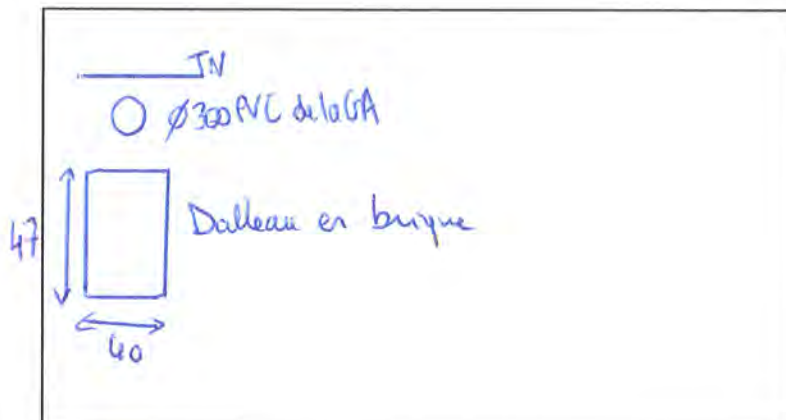 TN
Ø300 PVC de la GA
Dalleau en brique
47
40